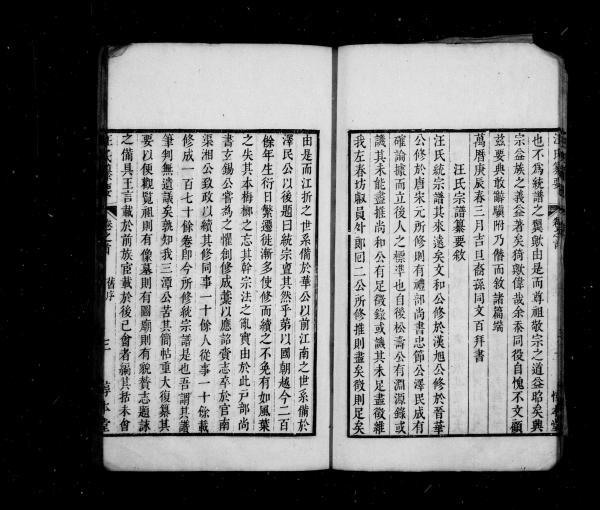 汪氏纂要
也不為統譜之翼歟由是而尊祖敬宗之道益昭矣典
宗益族之義益著矣猗歟偉哉余忝同役自愧不文顧
茲要典敢辭驥附乃僭而敘諸篇端
萬曆庚辰春三月吉旦裔孫同文百拜書
汪氏宗譜纂要敘
汪氏統宗譜其來遠矣文和公修於漢旭公修於晉華
公修於唐宋元所修則有禮部尚書忠節公澤民咸有
確論據而立後人之標準也自後松壽公有淵源錄或
譏其未能盡推尚和公有足徵錄或譏其未足盡徵維
我左春坊淑員外郎回二公所修推則盡矣徵則足矣
由是而江折之世系備於華公以前江南之世系備於
澤民公以後題曰統宗亶其然乎第以國朝越今二百
餘年生衍日繁遷徙漸多使修而續之不免有如風葉
之失其本梅槨之忘其幹宗法之亂實由於此戶部尚
書玄錫公嘗為之懼創修成藁以應詔賫志卒於官南
渠湘公致政以續其修同事一十餘人從事一十餘載
修成一百七十餘卷即今所修統宗譜是也吾謂其譜
筆刋無遺議矣孰知我三潭公苦其簡帖重大復纂其
要以便觀覧祖則有像墓則有圖廟則有貌贊志題詠
之備具王言載於前族宦載於後已會者編其括未會
汪氏纂要
卷之首
舊序
三